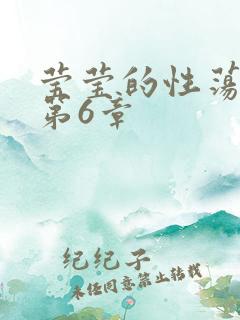 莹莹的性荡
第6章
纪纪子
未经同意禁止转载